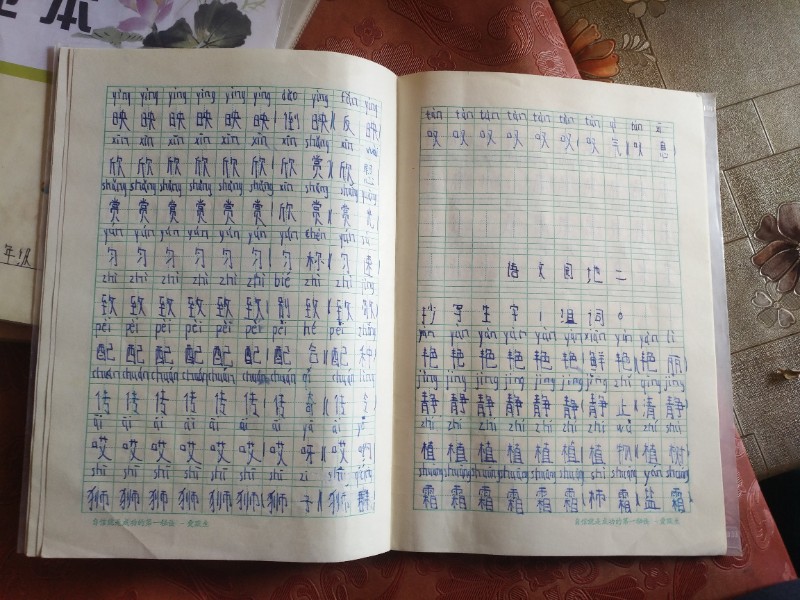 yìng yìng yìng yìng yìng yìng dào yìng fǎn yìng
映 映 映 映 映 映(倒 映)(反 映)
xīn xīn xīn xīn xīn xīn xīn shǎng xīn
欣 欣 欣 欣 欣 欣(欣 赏)(欣
shǎng shǎng shǎng shǎng shǎng shǎng xīn shǎng shǎng
赏 赏 赏 赏 赏 赏(欣 赏)(赏
yún yún yún yún yún yún yún chèn yún sù
匀 匀 匀 匀 匀 匀(匀 称)(匀 速)
zhì zhì zhì zhì zhì zhì bié zhì zhì
致 致 致 致 致 致(别 致)(致
pèi pèi pèi pèi pèi pèi pèi hé pèi zhǒng
配 配 配 配 配 配(配 合)(配 种)
chuán chuán chuán chuán chuán chuán chuán qí chuán
传 传 传 传 传 传(传 奇)(传
āi āi āi āi āi āi āi yā āi
哎 哎 哎 哎 哎 哎(哎 呀)(哎
shī shī shī shī shī shī shī zi shī qún
狮 狮 狮 狮 狮 狮(狮 子)(狮 群)
自信就是成功的第一秘诀 · 爱默生
tàn tàn tàn tàn tàn tàn tàn qì tàn xī
叹 叹 叹 叹 叹 叹(叹 气)(叹 息)
语文园地二
抄写生字,组词。
艳 艳 艳 艳 艳 艳(鲜 艳)(艳 丽)
jìng jìng jìng jìng jìng jìng jìng zhǐ qīng jìng
静 静 静 静 静 静(静 止)(清 静)
zhí zhí zhí zhí zhí zhí zhí wù zhí shù
植 植 植 植 植 植(植 物)(植 树)
shuāng shuāng shuāng shuāng shuāng shuāng shì shuāng yán shuāng
霜 霜 霜 霜 霜 霜(柿 霜)(盐 霜)
自信就是成功的第一秘诀 · 爱默生
年级